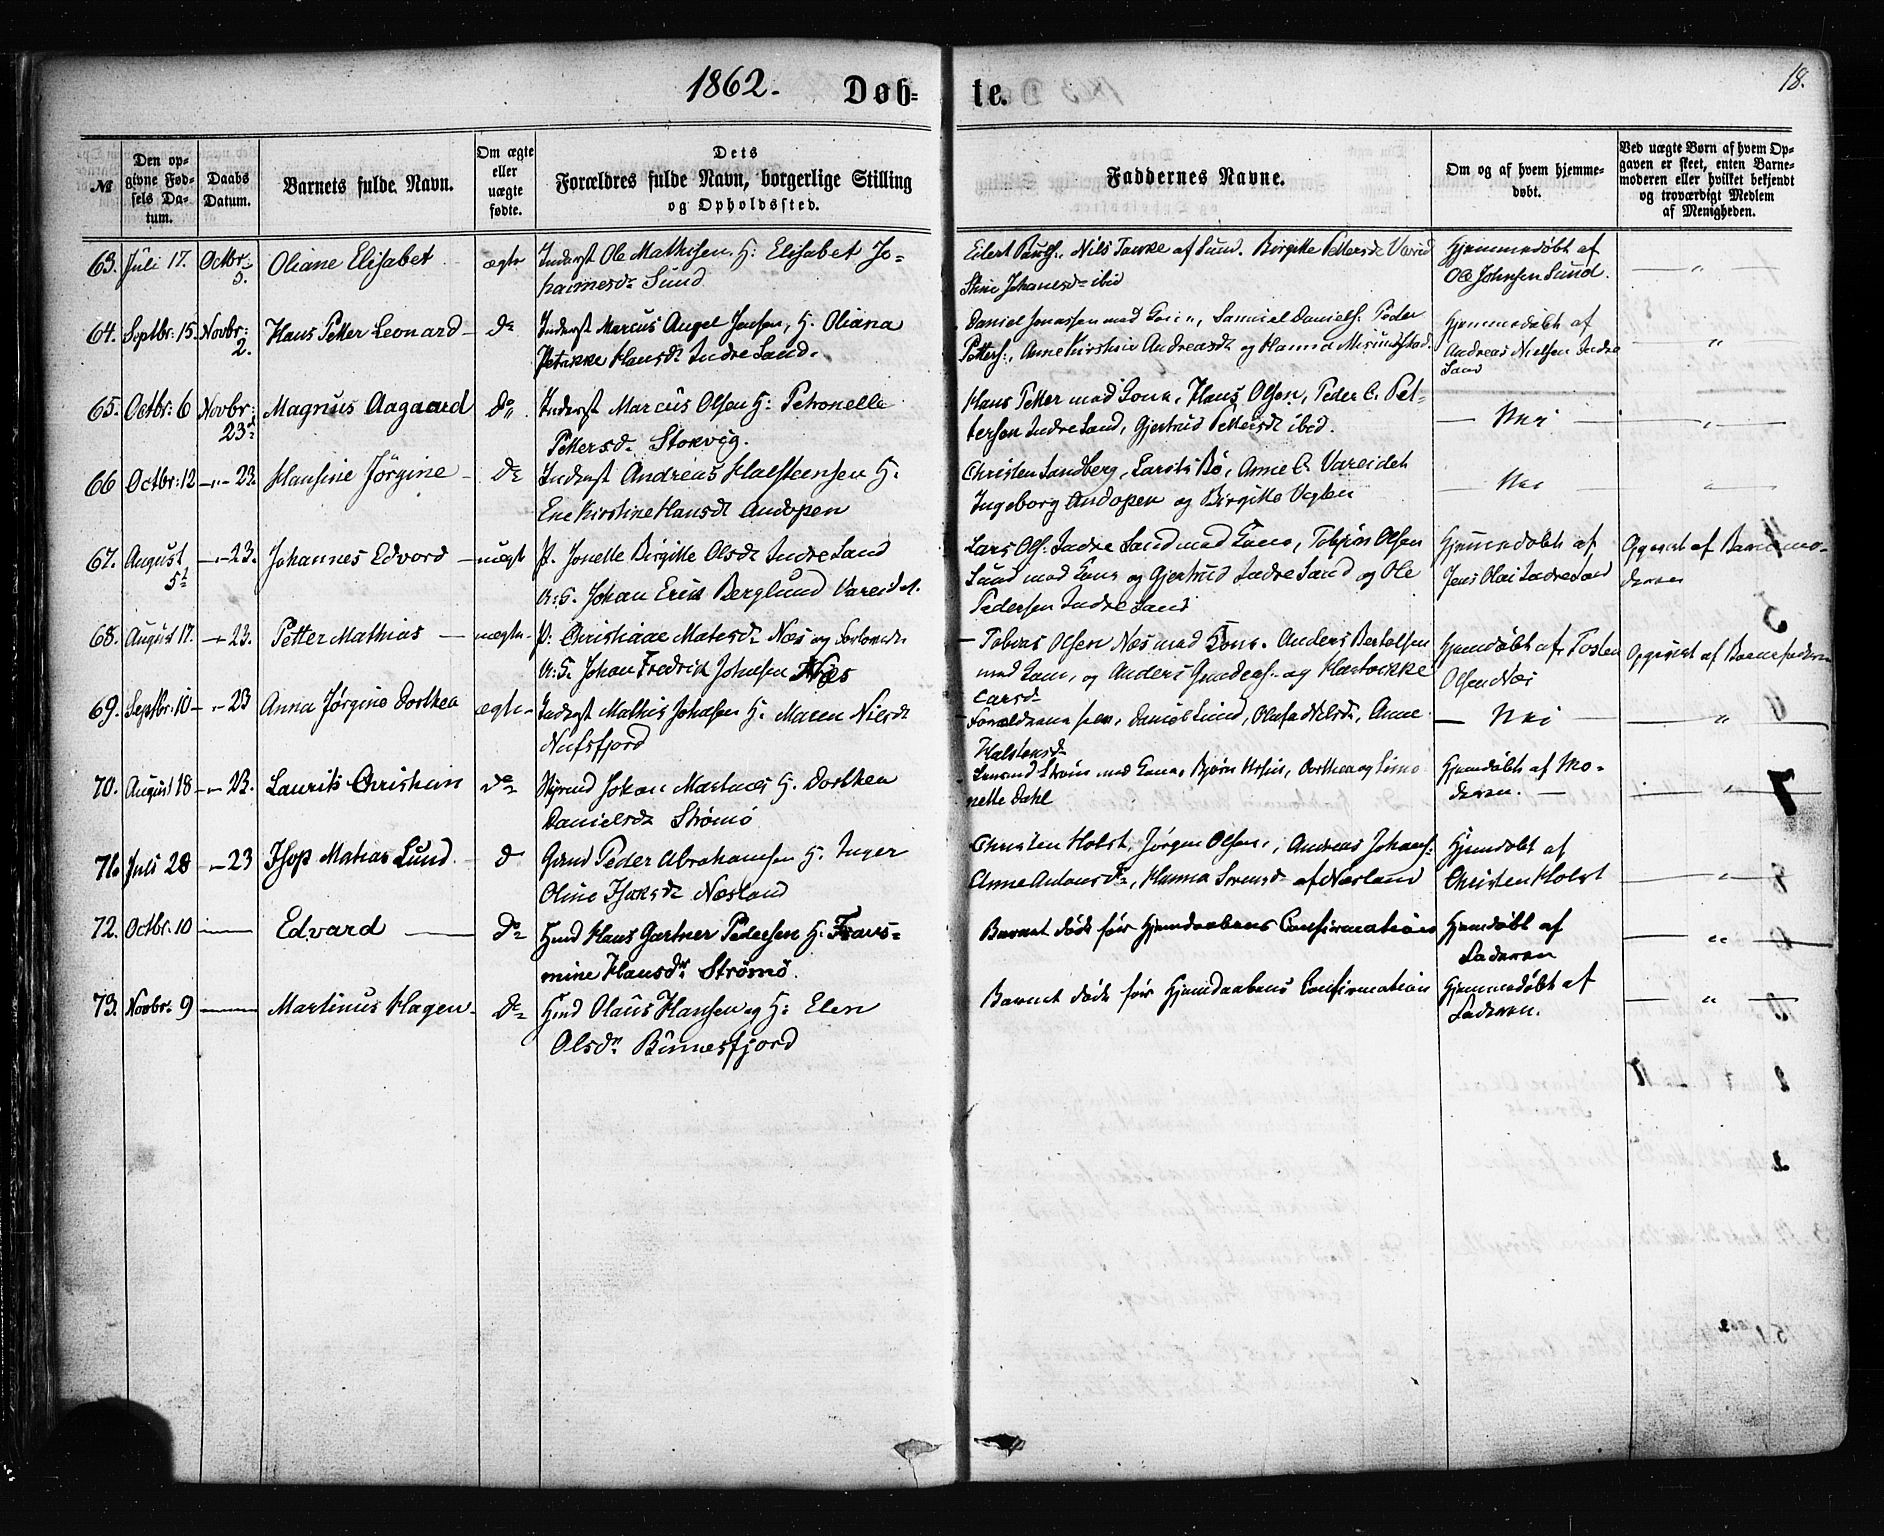 1862.
Døb-
te.
18.
№
Den op-
givne Fød-
sels Da-
tum.
Daabs
Datum.
Barnets fulde Navn.
Om ægte
eller
uægte
fødte.
Dets
Forældres fulde Navn, borgerlige Stilling
og Opholdssted.
Faddernes Navne.
Om og af hvem hjemme-
døbt.
Ved uægte Børn af hvem Op-
gaven er skeet, enten Barne-
moderen eller hvilket bekjendt
og troværdigt Medlem
af Menigheden.
63. Juli 17. Octbr: 5. Oliane Elisabet ægte Inderst Ole Mathisen H: Elisabet Jo-
hannesdr Sund
Nils Tanke af Sund. Birgitte Pettersdr
Stine Johanesdr ibid
Hjemmedøbt af
Ole Johnsen Sund.
64. Septbr: 15. Novbr: 2. Hans Petter Leonard Do Inderst Marcus Angel Jensen, H: Oliana
Petrikke Hansdr Indre Sand.
Daniel Jonassen med Kone, Samuel Daniels. Peder
Petters:, Anne Kirstine Andreasdr og Hanna
Hjemmedøbt af
Andreas Nielsen Indre
Sand
65. Octbr: 6 Novbr: 23d Magnus Aagaard Do Inderst Marcus Olsen H: Petronelle
Pettersdr Stokvig.
Hans Petter med Kone, Hans Olsen, Peder C. Pet-
tersen Indre Sand, Gjertrud Pettersdr ibid.
Nei
66 Octbr: 12 — 23 Hansine Jörgine Do Inderst Andreas Halfstensen H:
Ene Kirstine Hansdr Andopen
Christen Sandberg, Laurits Bø, Anne C. Vareidet
Ingeborg Andopen og Birgitte
Nei
67. August 5t — 23. Johannes Edvord uægte P. Jonette Birgitte Olsdr Indre Sand
U: S. Johan Erik Berglund Vareidet.
Lars Ols: Indre Sand med Kone, Tobias Olsen
Sund med Kone og Gjertrud Indre Sand og Ole
Pedersen Indre Sand
Hjemmedøbt af
Jens Olai Indre Sand
Opgivet af Barnemo-
deren
68. August 17. — 23. Petter Mathias uægte P: Christiane Matisdr Næs og
U: S. Johan Fredrik Johnsen Næs
Tobias Olsen Næs med Kone. Anders Bertelsen
med Kone, og Anders og
Larsdr
Hjemdøbt af: Tosten
Olsen Næs
Opgivet af Barnefaderen
69. Septbr: 10 — 23 Anna Jørgine Dorthea ægte Inderst Mathis Johnsen H. Maren Nielsdr
Nufsfjord
Forældrene selv, Daniel Lund, Nilsdr, Anne
Halstensdr
Nei
70. August 18 — 23. Laurits Christian Do Johan Martnas H. Dorthea
Danielsdr Strømø
Strøm med Kone, Bjørn
nette Dahl
Hjemdøbt af Mo-
deren.
71. Juli 28 — 23 Isop Matias Lund Do Gmd Peder Abrahamsen H. Inger
Oline Isaksdr Næsland
Christen Holst, Jørgen Olsen, Andreas Johans:
Anne Antonsdr, Hanna Sørensdr af Næsland
Hjemdøbt af
Christen Holst
72. Octbr: 10 — Edvard — Do Hmd Hans Gartner Pedersen H: Frans-
mine Hansdr Strømø.
Barnet døde før Hjemdaabens Confirmation
Hjemdøbt af
Faderen
73. Novbr: 9 — Martinus Hagen Do Hmd Olaus Hansen og H: Elen
Olsdr Bunnesfjord
Barnet døde før Hjemdaabens Confirmation
Hjemmedøbt af
Faderen.